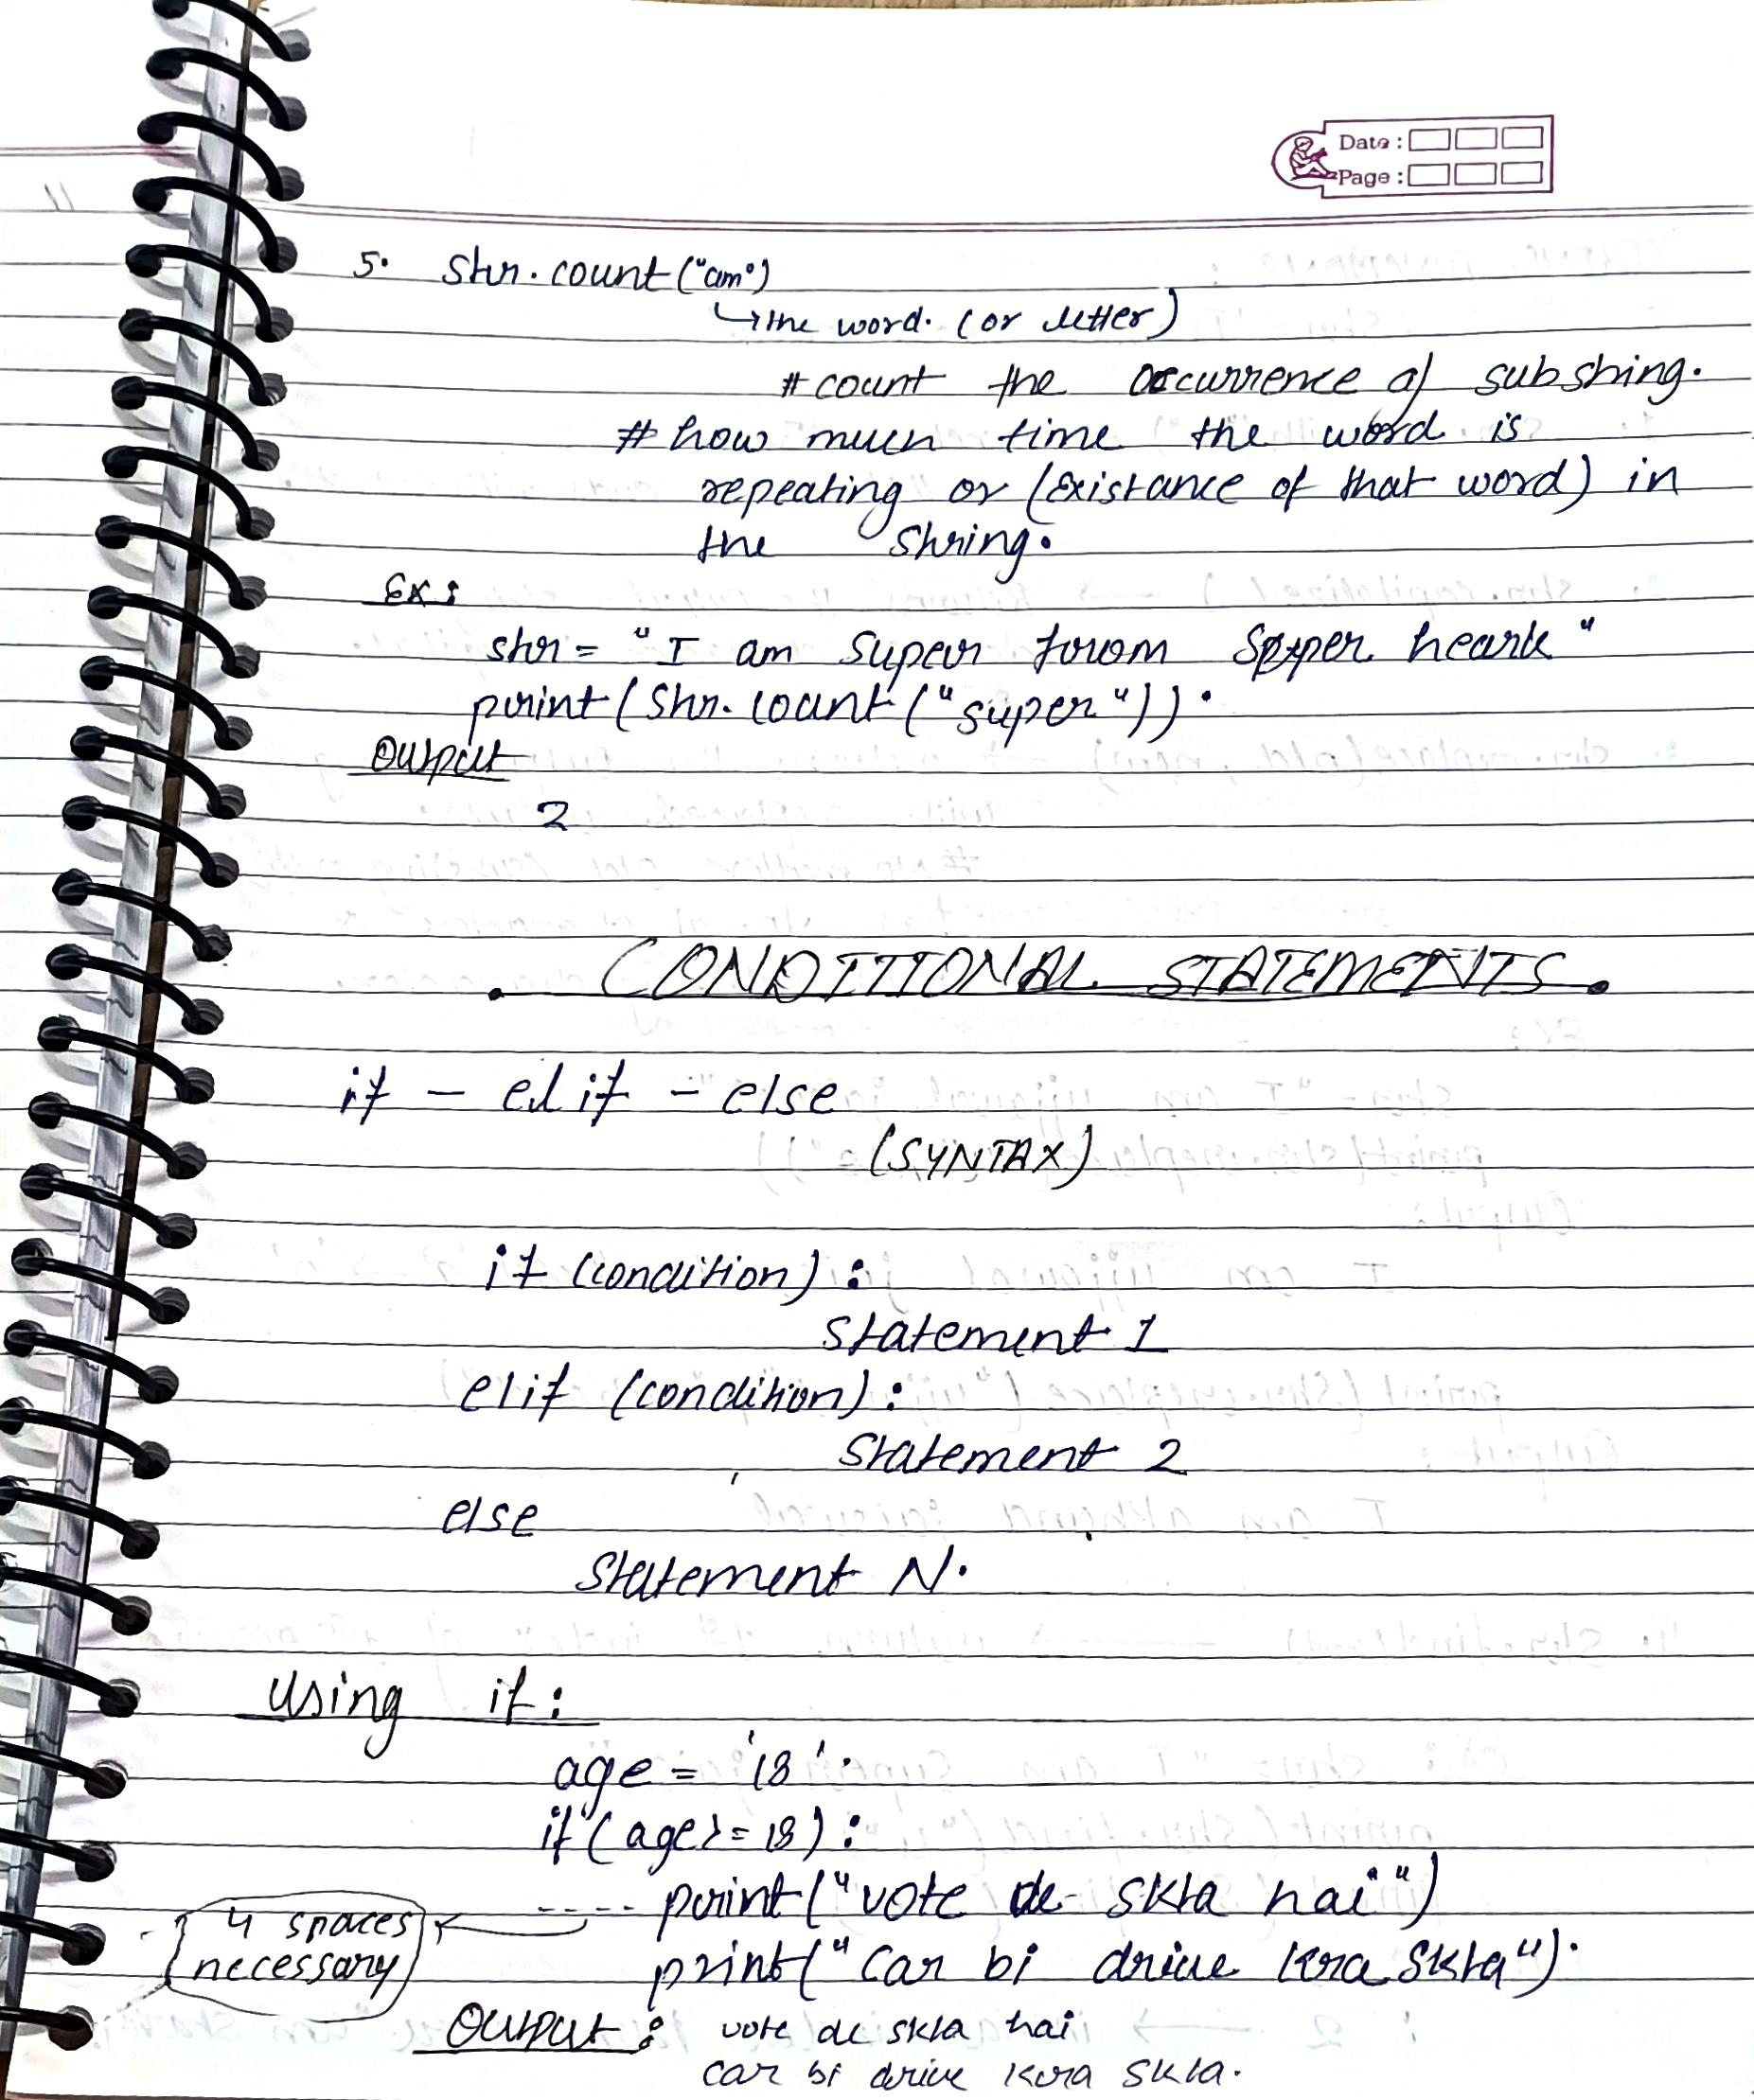 Date :
Page :
5. str.count("am")
↳ the word. (or letter)
# count the occurrence of substring.
# how much time the word is
repeating or (existance of that word) in
the string.
Ex:
str = "I am super from super heark"
print(str.count("super")).
Output
2
. CONDITIONAL STATEMENTS .
if - elif - else
(SYNTAX)
if (condition) :
statement 1
elif (condition) :
statement 2
else
statement N.
using if :
age = '18'.
if (age>=18) :
---- print("vote de skta hai")
4 spaces
necessary
print("car bi drive kra skta").
Output : vote de skta hai
car bi drive kra skta.